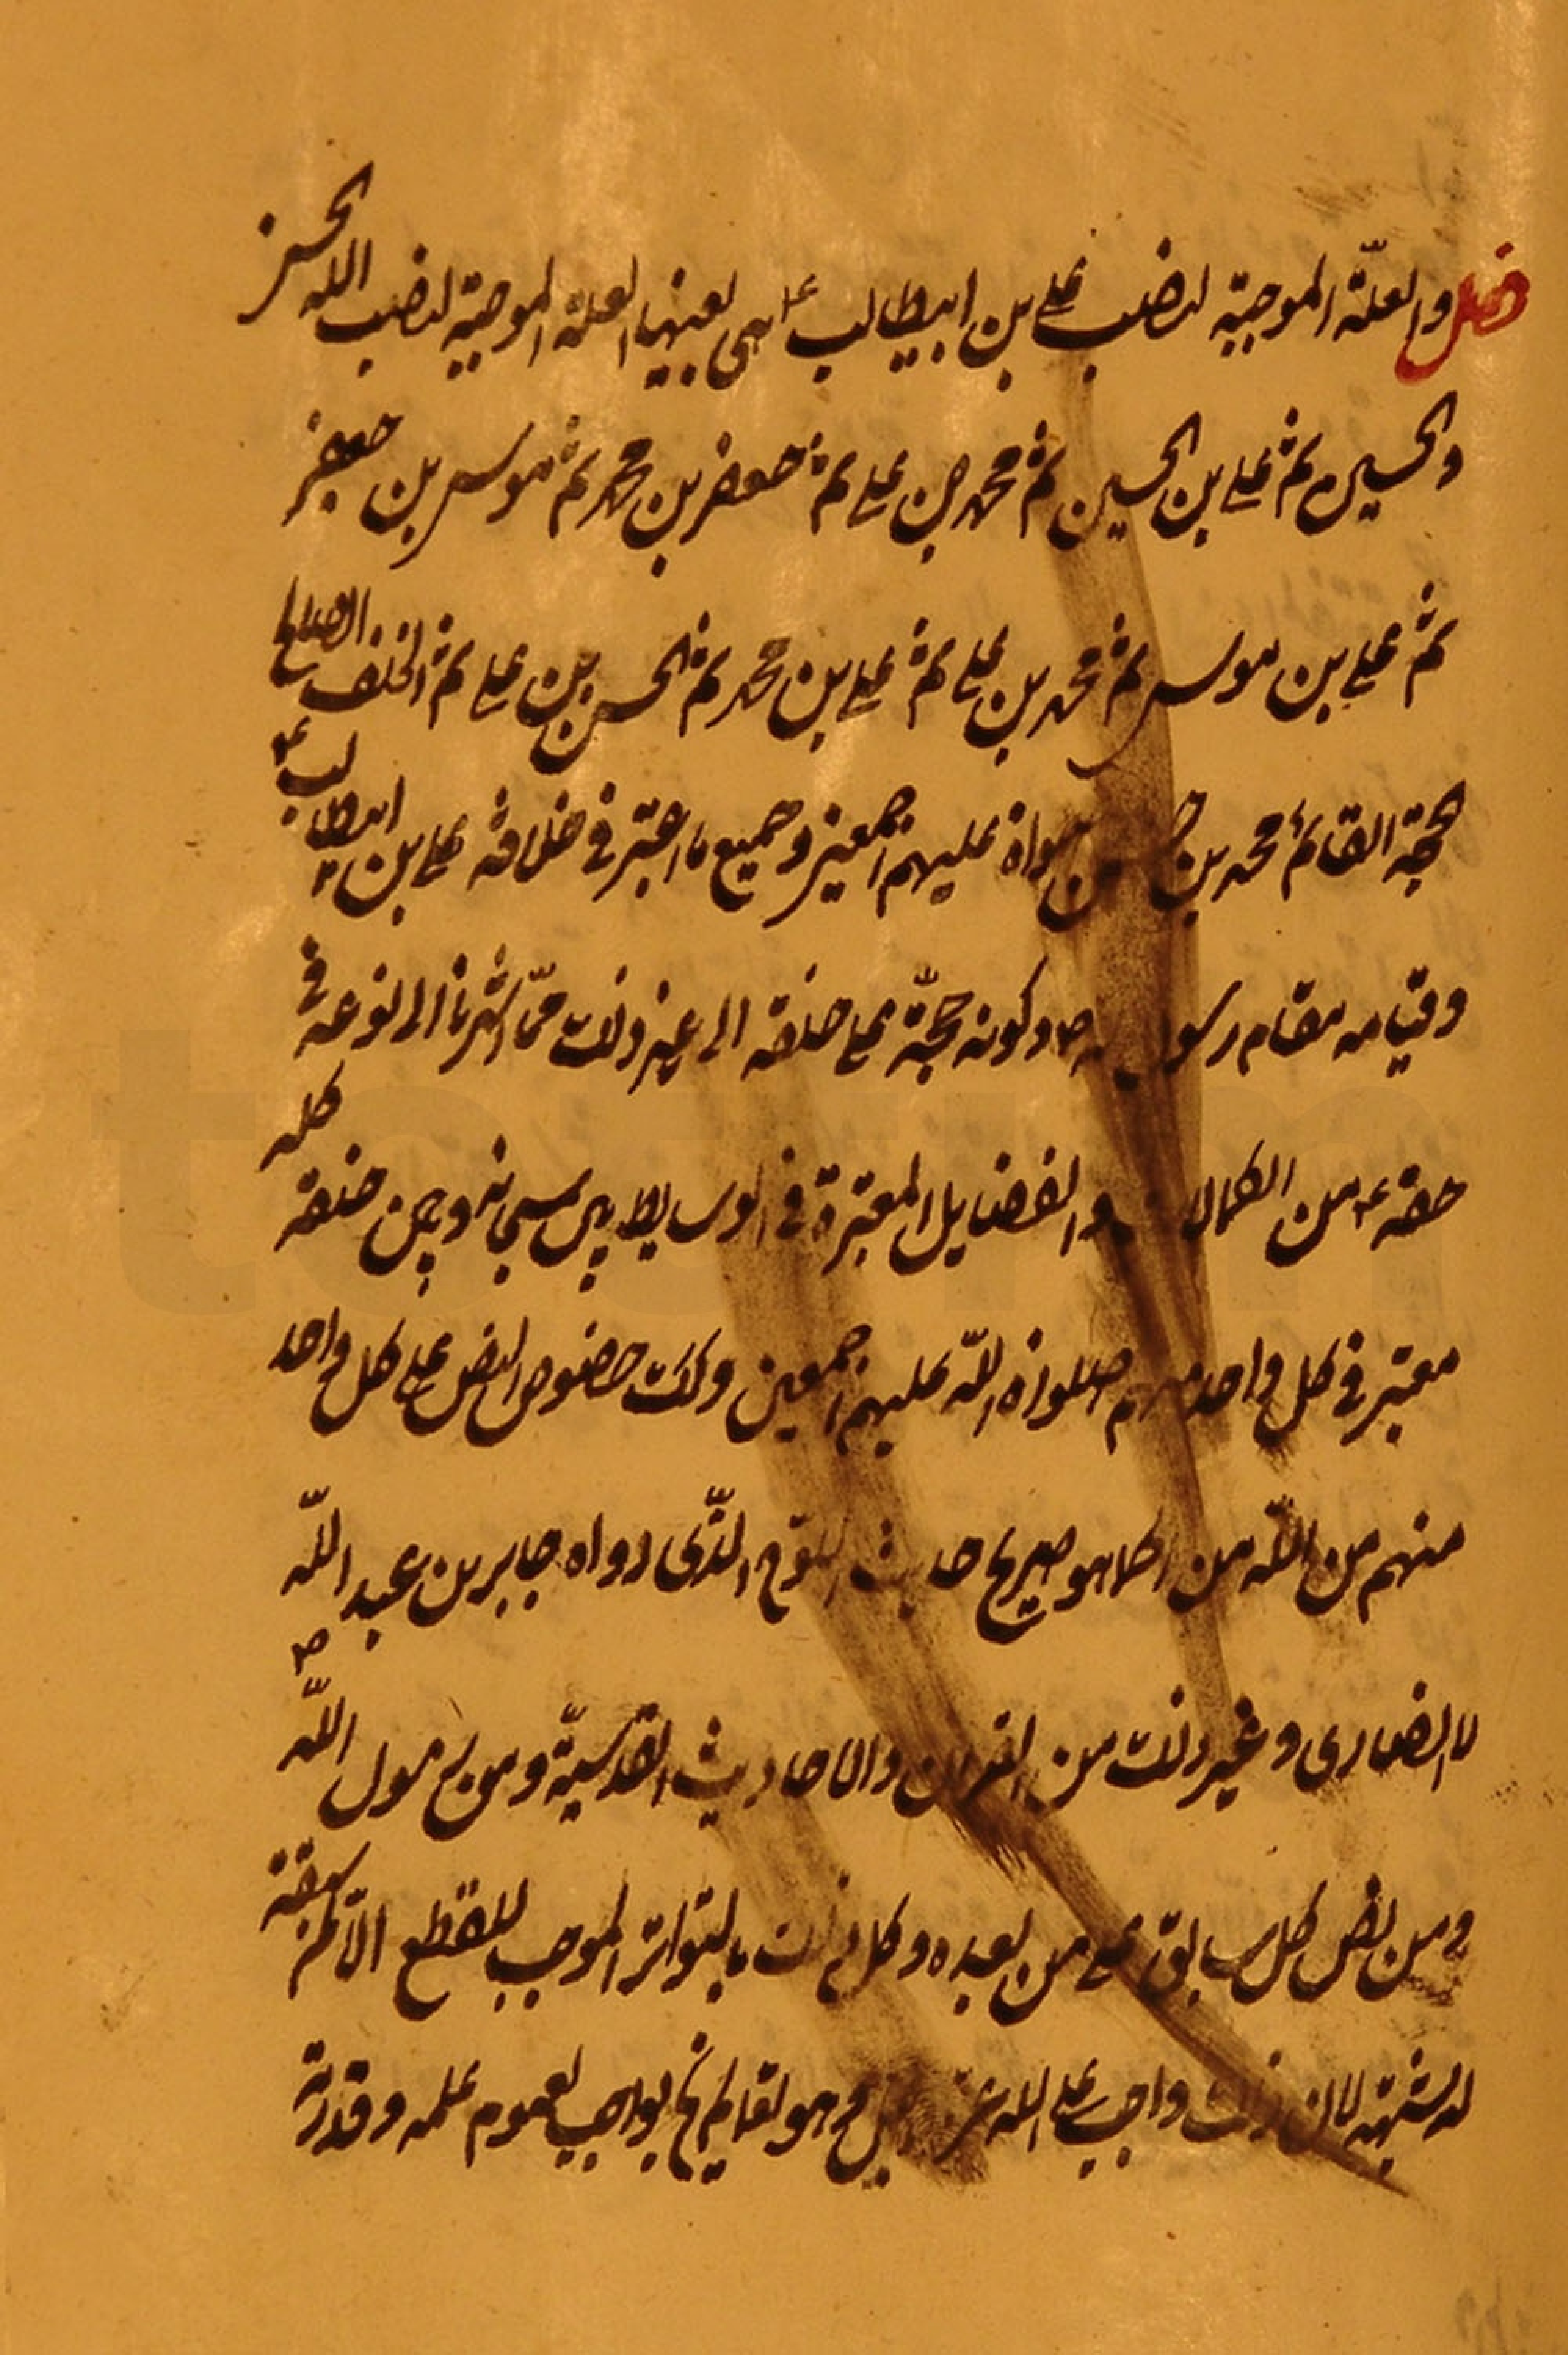 فصل والعلّة الموجبة لنصب علي بن ابيطالب ع هي بعينها العلة الموجبة لنصب الله الحسن
والحسين ثم علي بن الحسين ثم محمد بن علي ثم جعفر بن محمد ثم موسى بن جعفر
ثم علي بن موسى ثم محمد بن علي ثم علي بن محمد ثم الحسن بن علي ثم الخلف الصالح
الحجة القائم محمد بن عليهم اجمعين وجميع ما اعتبر في خلافة علي بن ابيطالب ع
وقيامه مقام رسول ص وكونه حجّة على خلقه الى غير ذلك ممّا اشرنا الى نوعه في
حقه ع من الكمالات والفضايل المعتبرة في الوسايط بين سبحانه وبين خلقه كله
معتبر في كل واحد منهم صلوات الله عليهم اجمعين وكك خصوص النص على كل واحد
منهم من الله من كما هو صريح حديث اللوح الذّى رواه جابر بن عبد الله
الانصارى وغير ذلك من القران والاحاديث القدسيّة ومن رسول الله ص
ومن نص كل سابق على من بعده وكل ذلك بالتواتر الموجب للقطع الّا لمن سبقته
لشبهة لان ذلك واجب على الله عز وجل وهو تعالى لم يخل بواجب لعموم علمه وقدرته